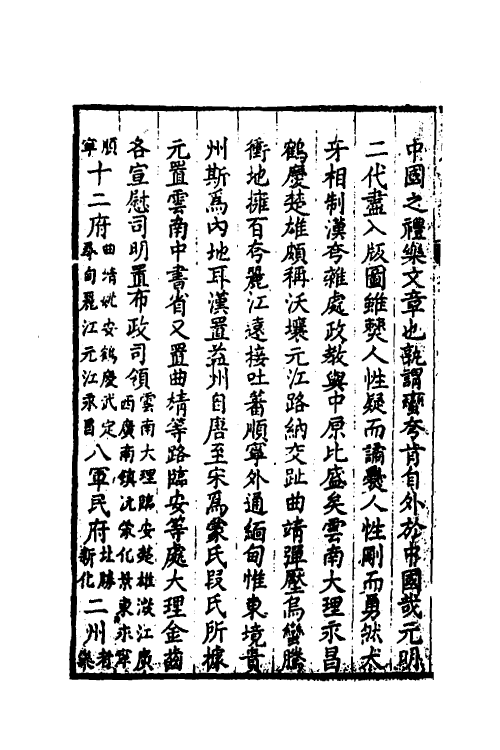 中國之禮樂文章也孰謂蠻夸肯自外於中國哉元明
二代盡入版圖雖僰人性疑而譎爨人性剛而勇然犬
牙相制漢夸雜處政教與中原比盛矣雲南大理永昌
鶴慶楚雄頗稱沃壤元江路納交趾曲靖彈壓烏蠻騰
衝地擁百夸麗江遠接吐蕃順寧外通緬甸惟東境貴
州斯爲內地耳漢置益州自唐至宋爲蒙氏段氏所據
元置雲南中書省又置曲靖等路臨安等處大理金齒
各宣慰司明置布政司領雲南大理臨安楚雄澂江廣西廣南鎮沅蒙化景東永寧
順寧十二府曲靖姚安鶴慶武定尋甸麗江元江永昌八軍民府北勝新化二州者樂